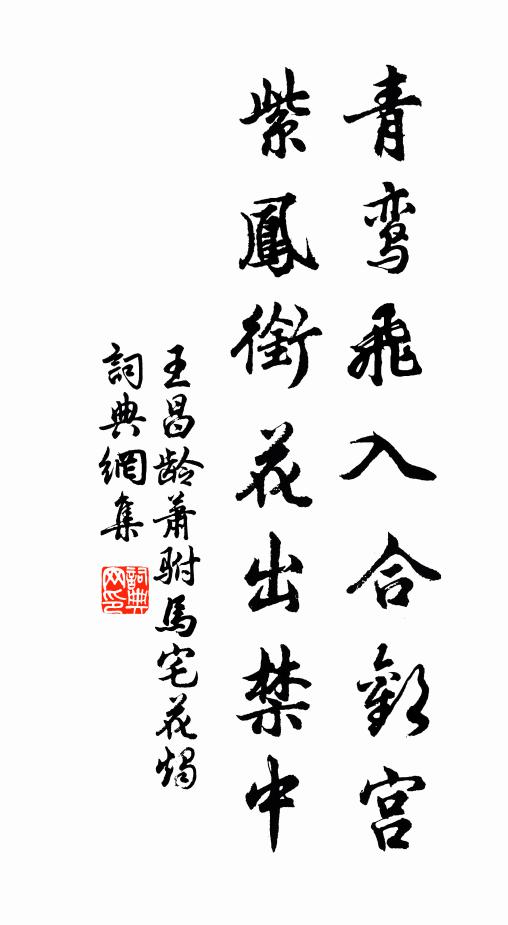 青鸾飛入合歡宮
紫鳳銜花出禁中
王昌龄蕭駙馬宅花燭
詞典網集
詞典網印